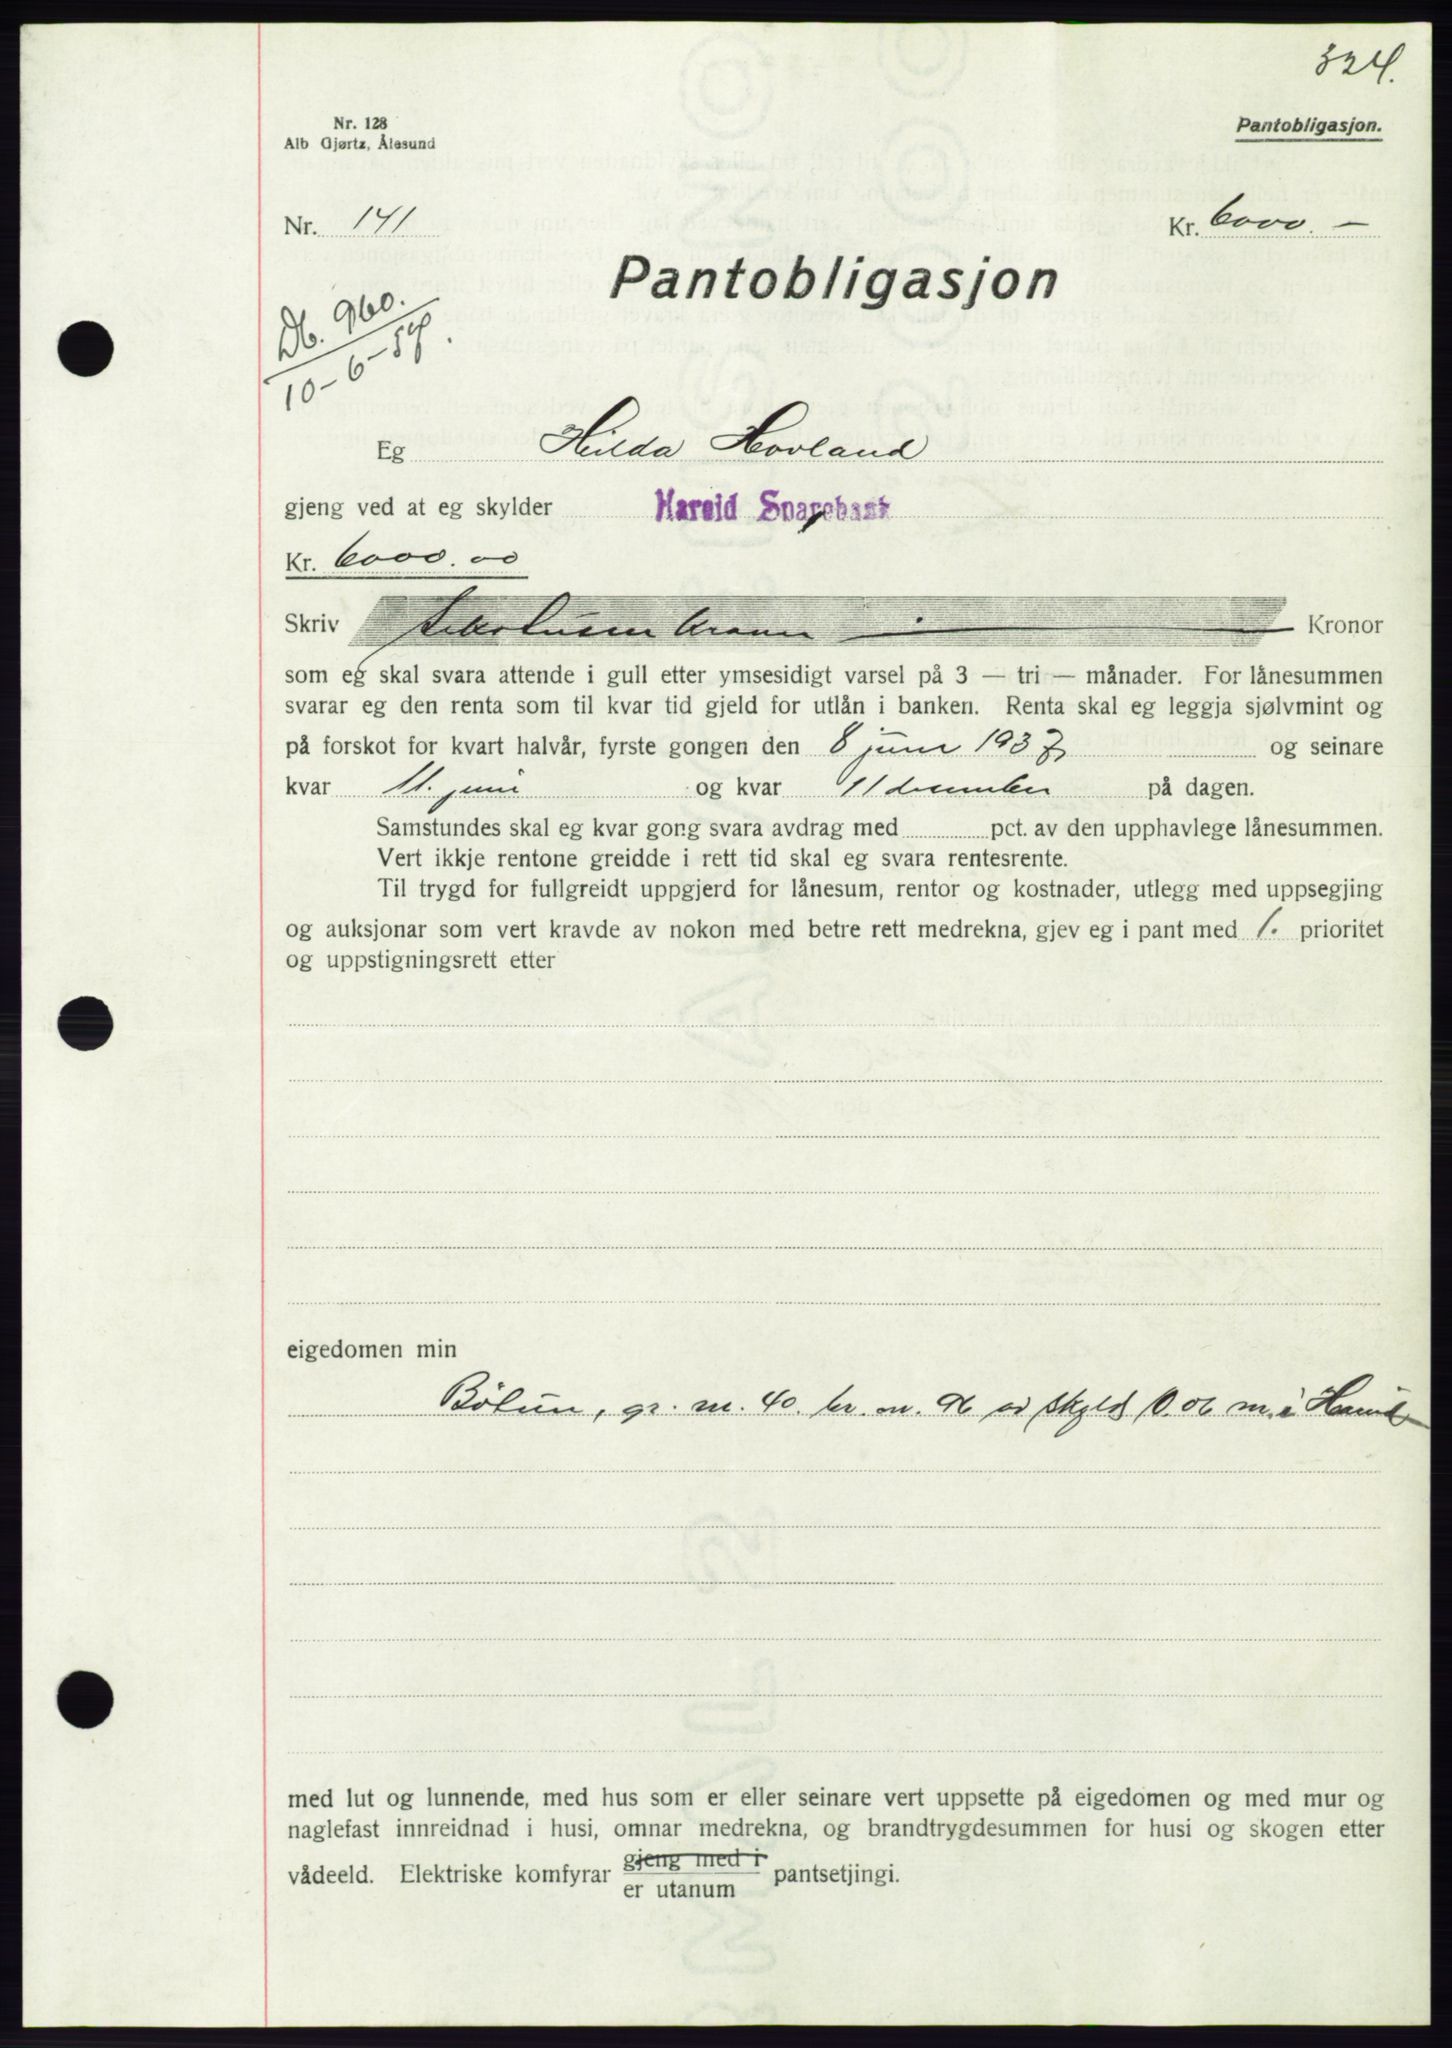 324.
Nr. 128
Alb Gjørtz, Ålesund
Pantobligasjon.
Nr. 141
Kr. 6000. —
Pantobligasjon
Db. 960.
10-6-37.
Eg Hilda Hovland
gjeng ved at eg skylder Hareid Sparebank
Kr. 6000.00
Skriv Sekstusen kroner Kronor
som eg skal svara attende i gull etter ymsesidigt varsel på 3 — tri — månader. For lånesummen
svarar eg den renta som til kvar tid gjeld for utlån i banken. Renta skal eg leggja sjølvmint og
på forskot for kvart halvår, fyrste gongen den 8 juni 1937 og seinare
kvar 11. juni og kvar 11 desember på dagen.
Samstundes skal eg kvar gong svara avdrag med pct. av den upphavlege lånesummen.
Vert ikkje rentone greidde i rett tid skal eg svara rentesrente.
Til trygd for fullgreidt uppgjerd for lånesum, rentor og kostnader, utlegg med uppsegjing
og auksjonar som vert kravde av nokon med betre rett medrekna, gjev eg i pant med 1. prioritet
og uppstigningsrett etter
eigedomen min
gr. nr. 40. br. nr. 96 av skyld 0.06 m. i Hareid
med lut og lunnende, med hus som er eller seinare vert uppsette på eigedomen og med mur og
naglefast innreidnad i husi, omnar medrekna, og brandtrygdesummen for husi og skogen etter
vådeeld. Elektriske komfyrar gjeng med i
er utanum pantsetjingi.